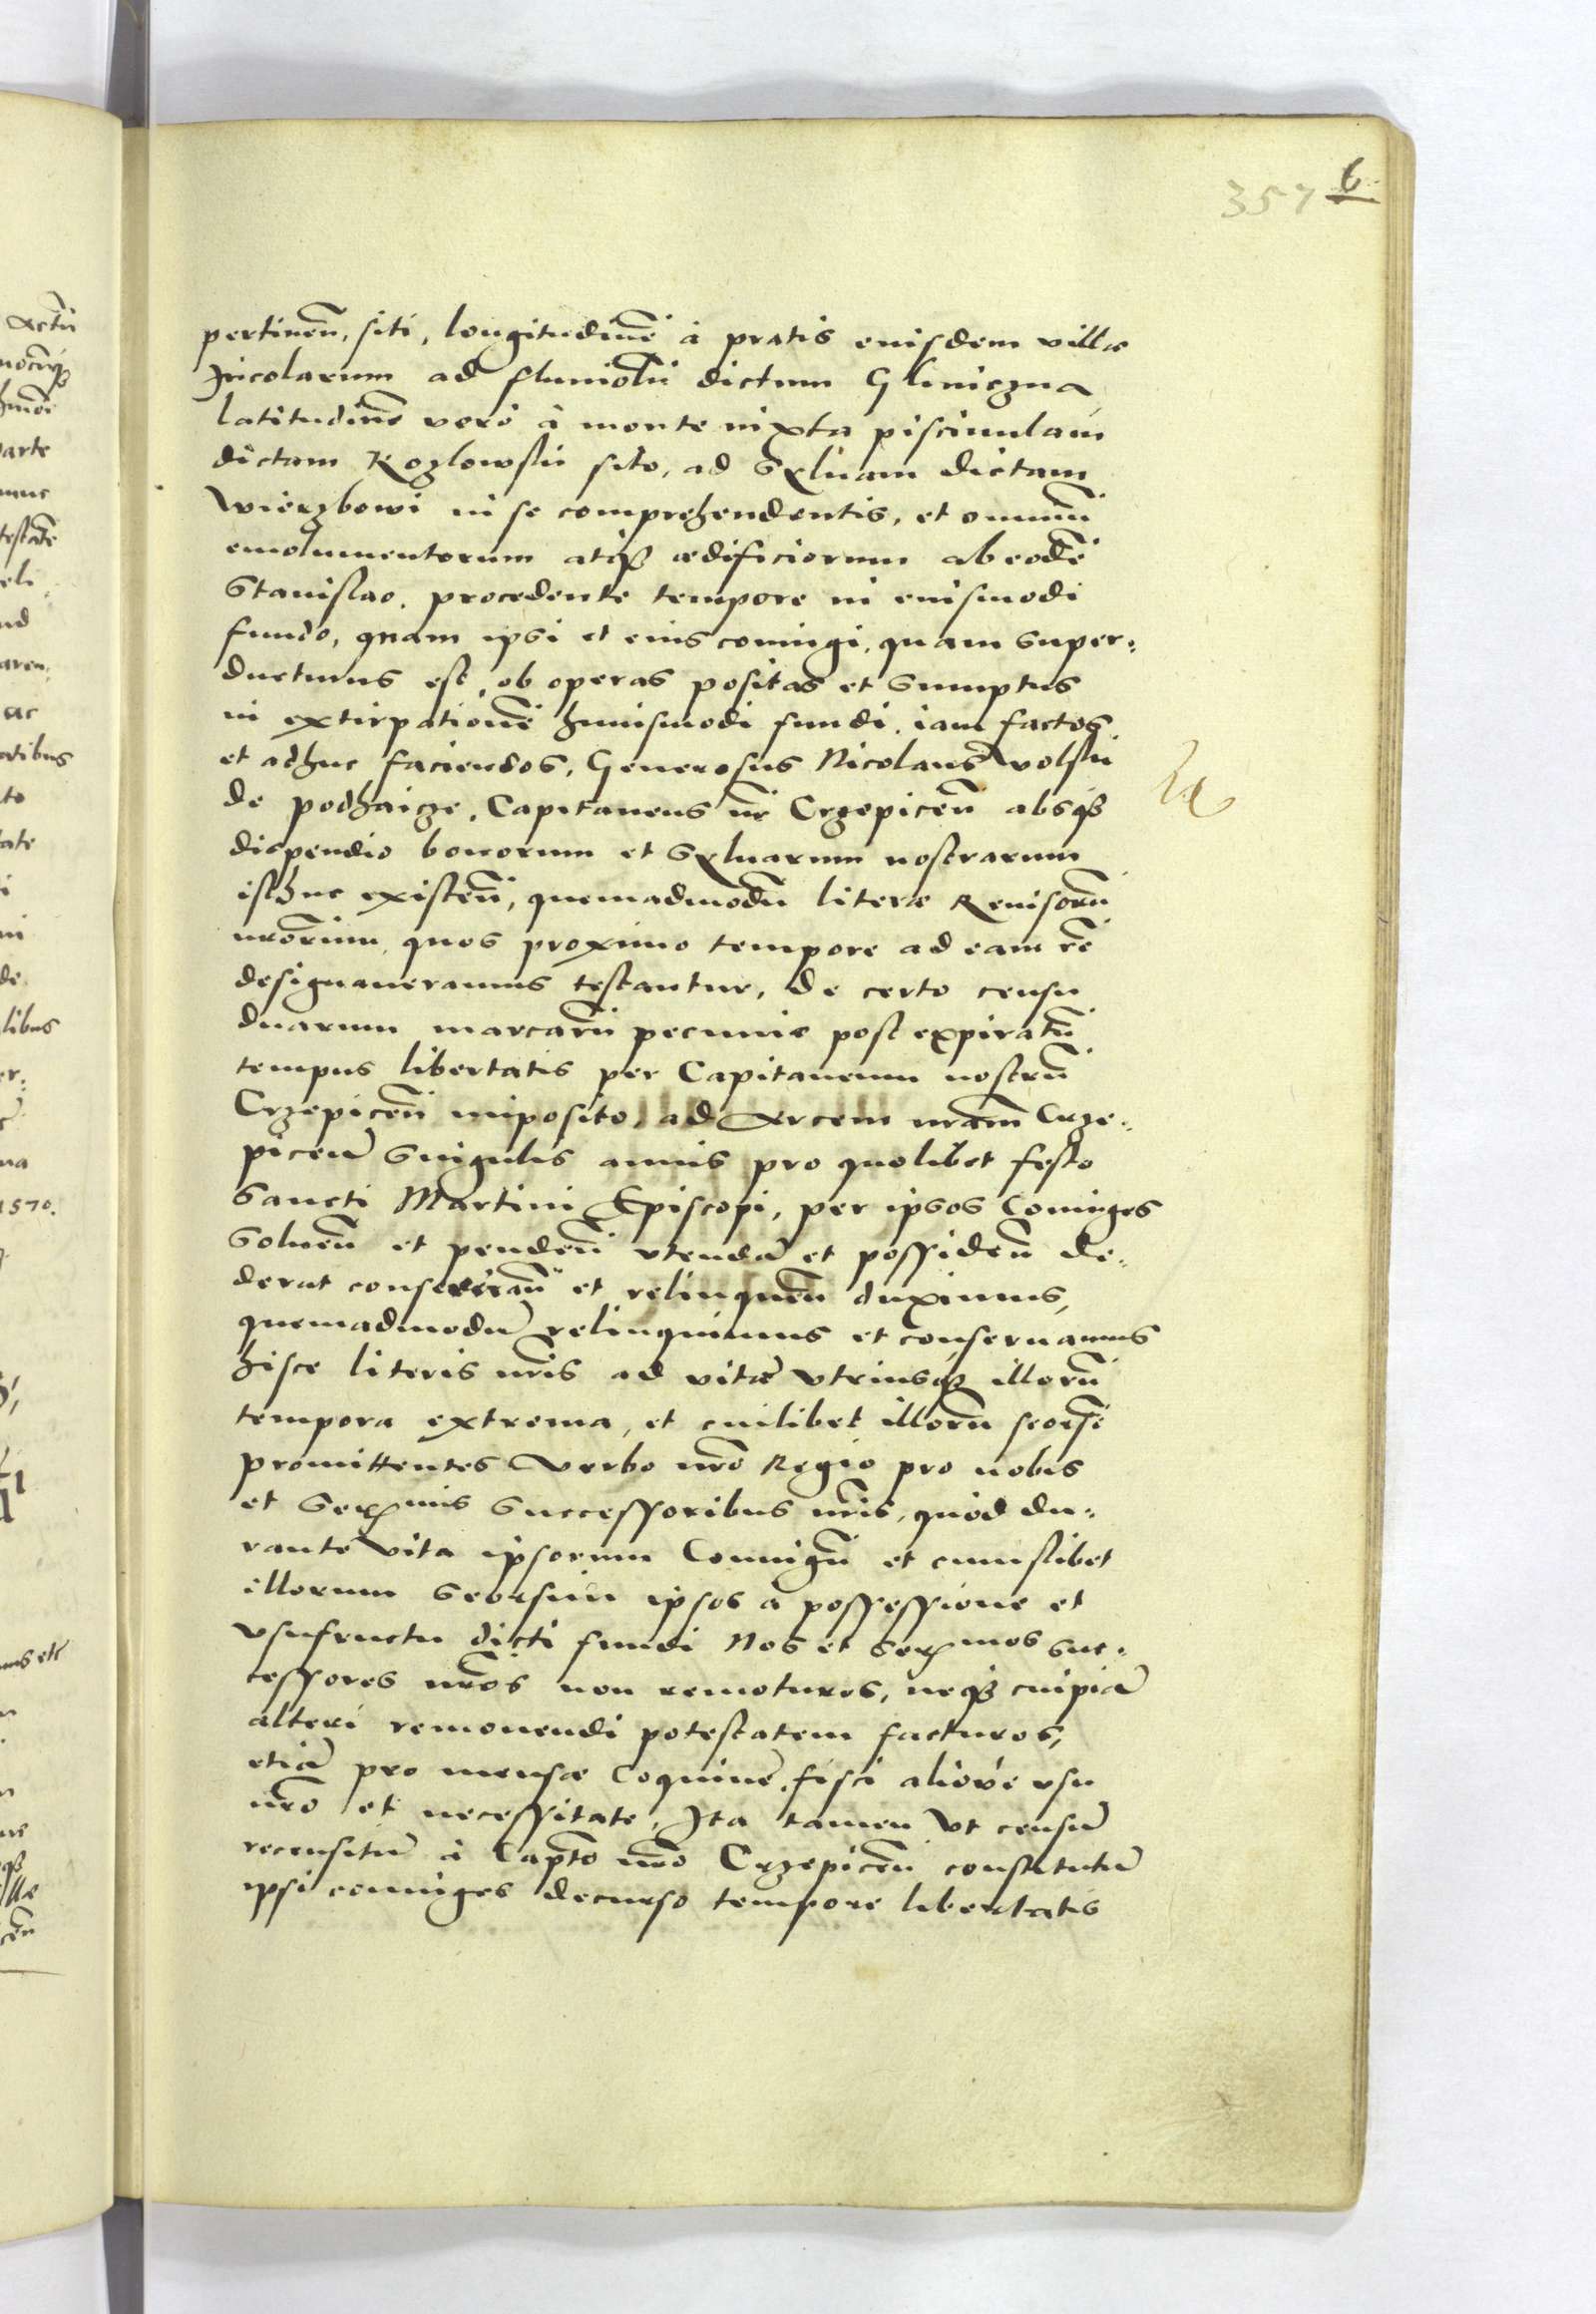 357 6
pertinen̄, siti, longitudinē à pratis eiusdem villæ
Incolarum ad fluuiolū dictum Gliniczna
latitudinē verò à monte iuxta pisciculam
dictam Kozlowski sito, ad Syluam dictam
Wierzbowi in se comprehendentis, et omniū
emolumentorum atqȝ ædificiorum ab eodē
Stanislao, procedente tempore in eiusmodi
fundo, quam ipsi et eius coniugi, quam super:
ducturus est, ob operas positas et sumptus
in extirpationē huiusmodi fundi, iam factos
et adhuc faciendos, Generosus Nicolaus Wolski
de podhaicze, Capitaneus nr̄ Crzepicen̄ absqȝ
dispendio bonorum et Syluarum nostrarum
isthuc existen̄, quemadmodū literæ Reuisorū
nrōrum, quos proximo tempore ad eam rē
designaueramus testantur, de certo censu
duarum marcarū pecuniæ post expiratū
tempus libertatis per Capitaneum nostrū
Crzepicen̄ imposito, ad Arcem nrām Crze:
picen̄ singulis annis pro quolibet festo
Sancti Martini Episcopi, per ipsos Coniuges
Soluen̄ et penden̄ vtendū et possiden̄ de:
derat conseruan̄ et relinquen̄ duximus,
quemadmodū relinquimus et conseruamus
hisce literis nrīs ad vitæ vtriusqȝ illorū
tempora extrema, et cuilibet illorū seorsī
promittentes Verbo nrō Regio pro nobis
et Ser mis Successoribus nrīs, quòd du:
rante vita ipsorum Coniugū et cuiuslibet
illorum Seorsim ipsos à possessione et
vsufructu dicti fundi Nos et Ser mos suc:
cessores nrōs non remoturos, neqȝ cuipiā
alteri remouendi potestatem facturos,
etiā pro mensæ Coquinē, fisci alioue vsu
nrō et necessitate, Ita tamen Vt censū
recensitū à Captō nrō Crzepicen̄ constitutū
ipsi coniuges decurso tempore libertatis